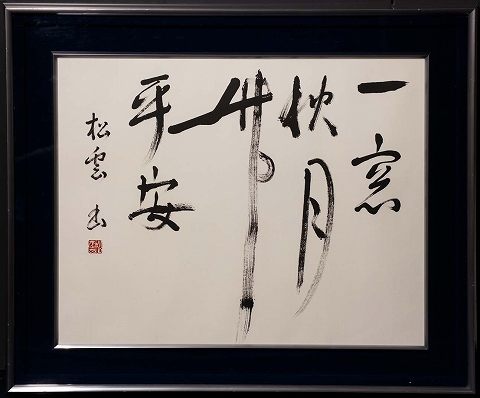 一窓
秋月
平安
松雲 書